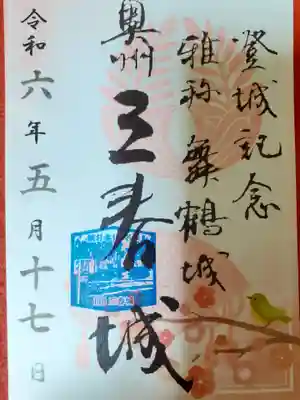 登城記念
雅称 舞鶴城
奥州 三春城
令和六年五月十七日